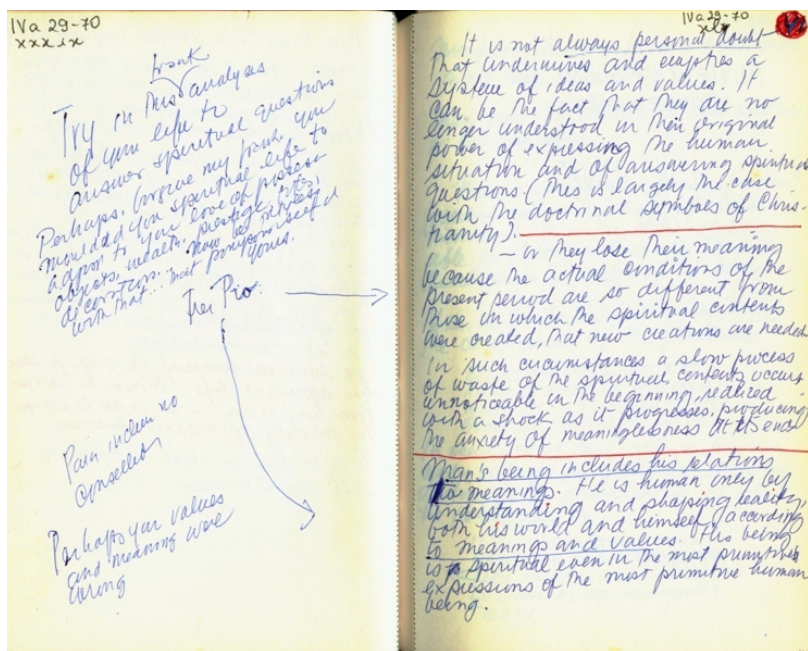 IVa 29-70
xxxix
weak
Try in this analysis
of your life to
answer spiritual questions
Perhaps, forgive my frank, you
moulded your spiritual life to
adjust to your love of
objects, wealth, prestige,
decoration. now be
with that... most
yours.
Para incluir no
Perhaps your values
and meaning were
wrong
IVa 29-70
xl
It is not always personal doubt
that undermines and empties a
system of ideas and values. It
can be the fact that they are no
longer understood in their original
power of expressing the human
situation and of answering spiritual
questions (this is largely the case
with the doctrinal symbols of Chris-
tianity).
– or they lose their meaning
because the actual conditions of the
present period are so different from
those in which the spiritual contents
were created, that new creations are needed
In such circumstances a slow process
of waste of the spiritual contents occurs
unnoticeable in the beginning, realized
with a shock as it progresses, producing
the anxiety of meaninglessness at its end
Man's being includes his relations
to meanings. He is human only by
understanding and shaping reality,
both his world and himself, according
to meanings and values. His being
is spiritual even in the most primitive
expressions of the most primitive human
being.